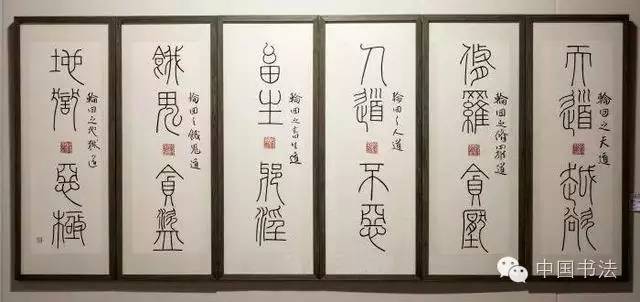 天道越欲
輪回之天道
修羅貪
輪回之脩羅道
人道不惡
輪回之人道
畜生邪淫
輪回之畜生道
餓鬼貪盜
輪回之餓鬼道
地獄惡極
輪回之地獄道
中国书法